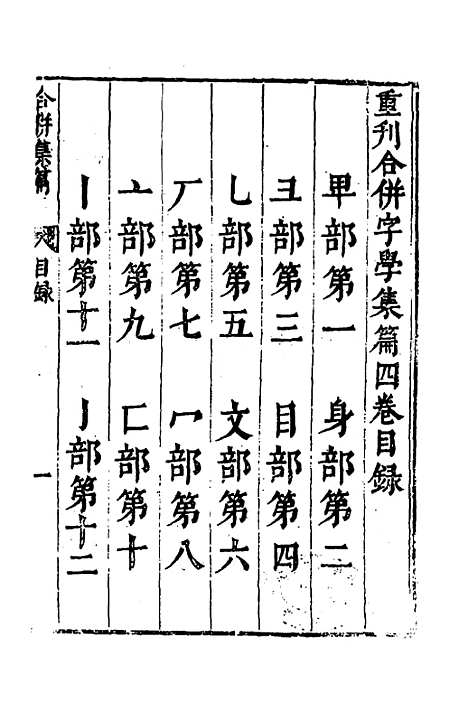 重刊合併字學集篇四卷目録
甲部第一 身部第二
彐部第三 目部第四
乚部第五 文部第六
厂部第七 冖部第八
亠部第九 匚部第十
丨部第十一 亅部第十二
合併集篇 目録 一